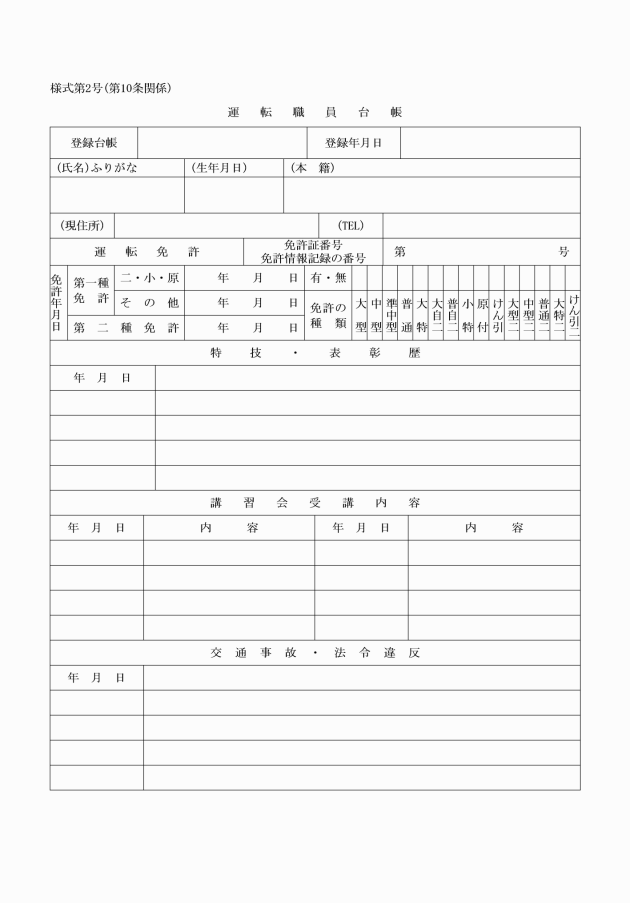 様式第2号(第10条関係)
運転職員台帳
登録台帳 登録年月日
(氏名)ふりがな (生年月日) (本 籍)
(現住所) (TEL)
運転免許 免許証番号
免許情報記録の番号 第 号
免許年月日 第一種免許 二・小・原 年 月 日 有・無
その他 年 月 日 免許の種類 大型 中型 準中型 普通 大特 大自二 普自二 小特 原付 けん引 大型二 中型二 普通二 大特二 けん引二
第二種免許 年 月 日
特技・表彰歴
年 月 日
講習会受講内容
年 月 日 内 容 年 月 日 内 容
交通事故・法令違反
年 月 日